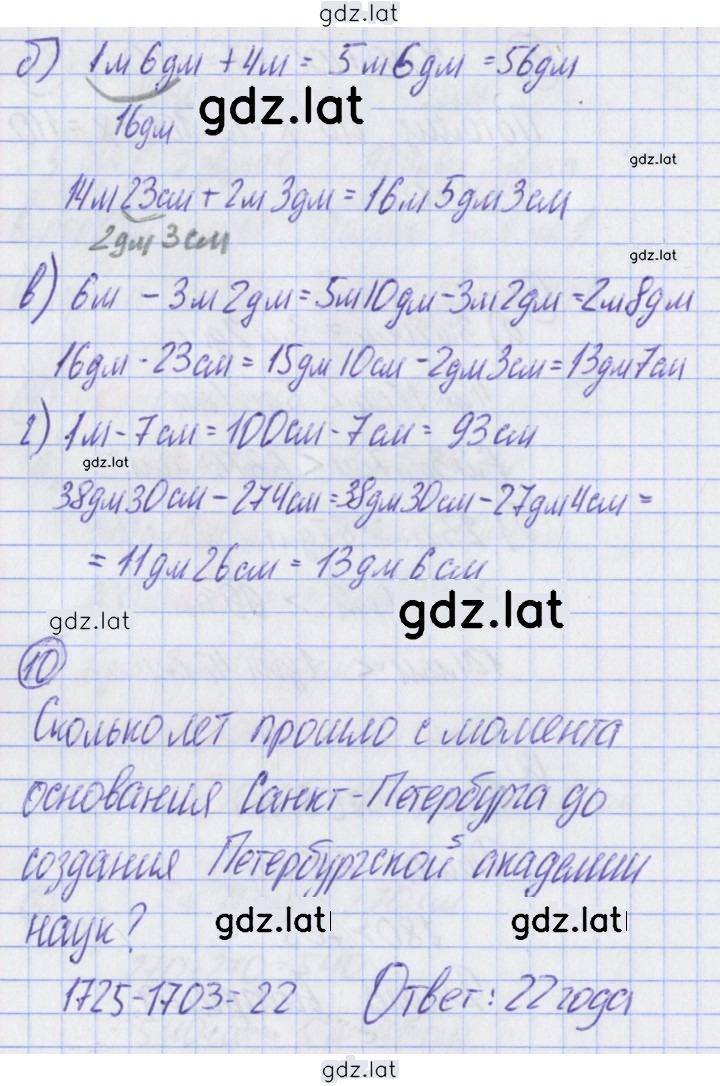 gdz.lat
б) 1м 6дм + 4м = 5м 6дм = 56дм
gdz.lat
16дм
gdz.lat
14м 23см + 2м 3дм = 16м 5дм 3см
2дм 3см
gdz.lat
в) 6м - 3м 2дм = 5м 10дм - 3м 2дм = 2м 8дм
16дм - 23см = 15дм 10см - 2дм 3см = 13дм 7см
г) 1м - 7см = 100см - 7см = 93см
gdz.lat
38дм 30см - 274см = 38дм 30см - 27дм 4см =
= 11дм 26см = 13дм 6см
gdz.lat
gdz.lat
10
Сколько лет прошло с момента
основания Санкт-Петербурга до
создания Петербургской академии
наук?
gdz.lat
gdz.lat
1725-1703=22 Ответ: 22 года
gdz.lat